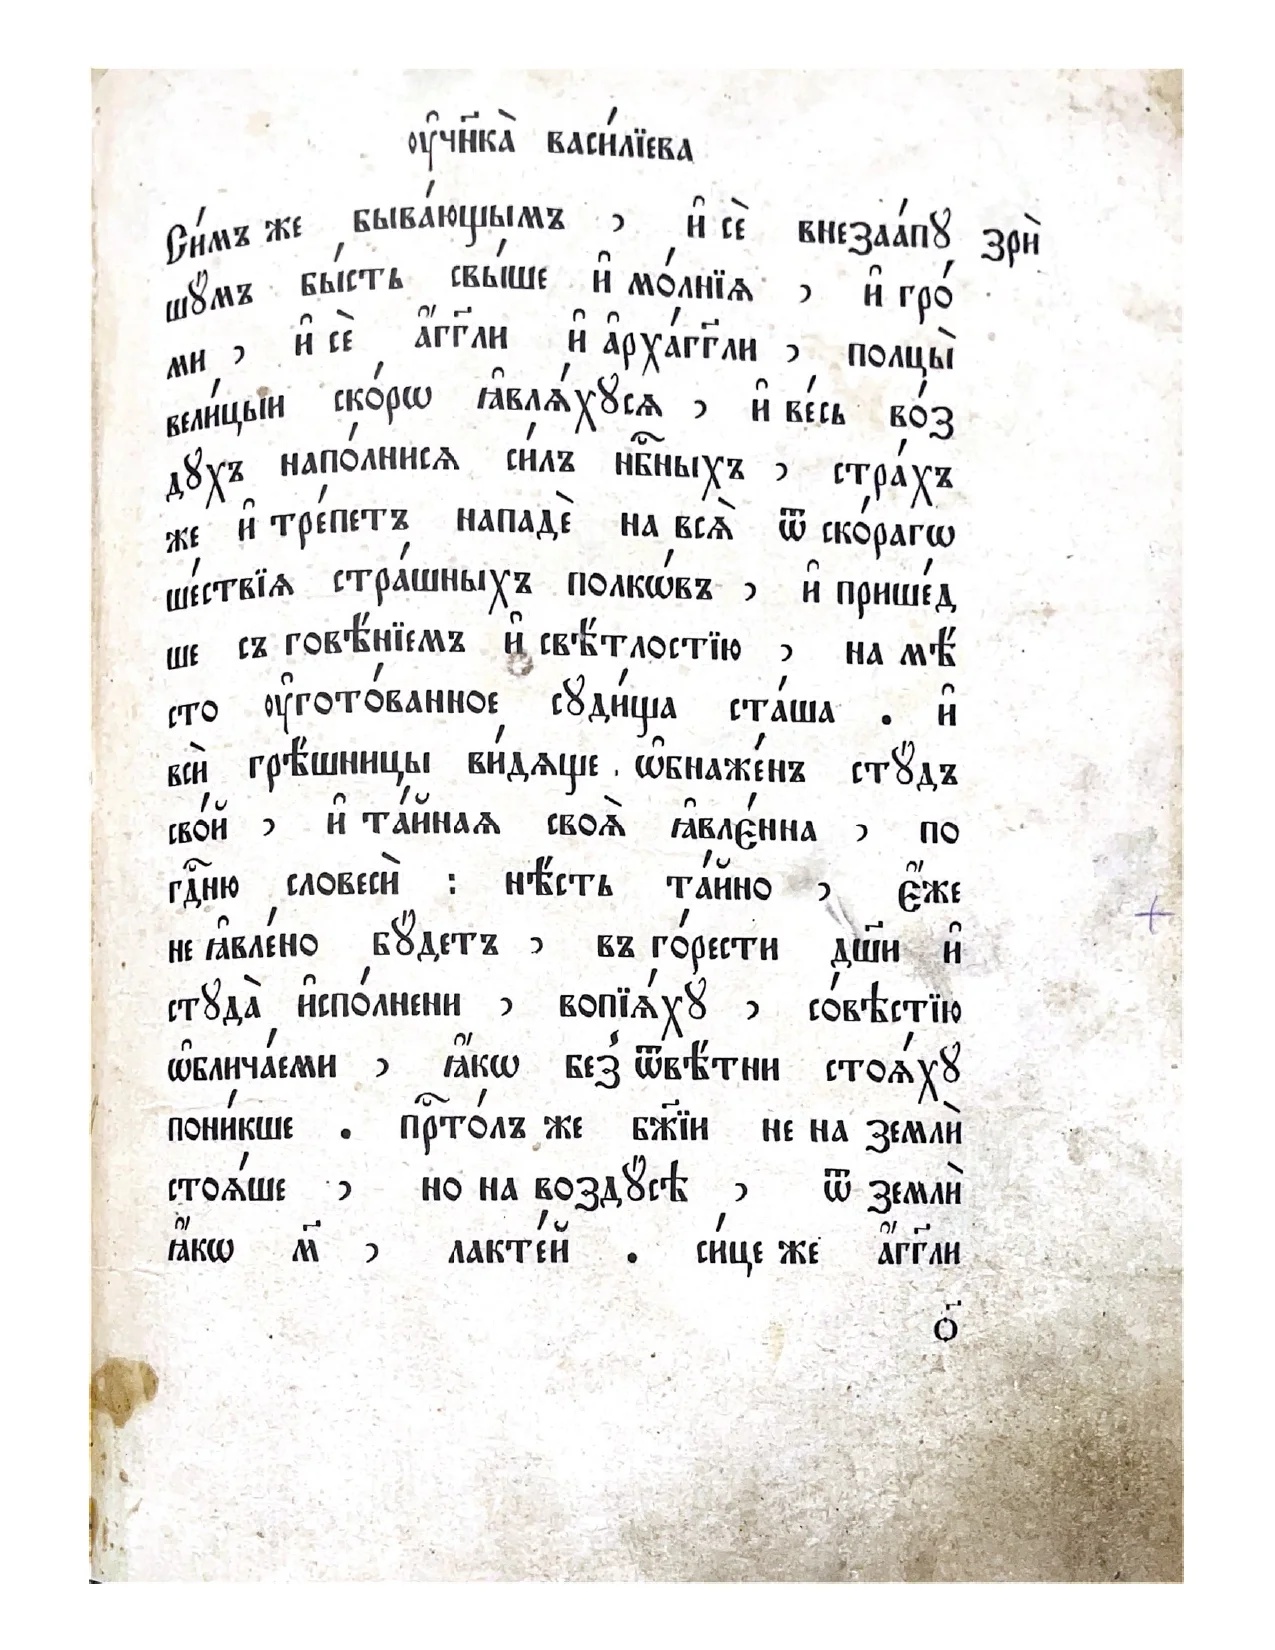 ᲂу҆чн҃ка̀ васи́лїєва
Си́мъ же быва́ющымъ , и҆ сѐ внезаа́пꙋ зрѝ
шꙋ́мъ бы́сть свы́ше и҆ мо́лнїѧ , и҆ гро́
ми , и҆ сѐ а҆́гг҃ли и҆ а҆рха́гг҃ли , полцы̀
вели́цыи ско́рѡ ꙗ҆влѧ́хꙋсѧ , и҆ ве́сь во́з
дꙋхъ напо́лнисѧ си́лъ нб҃ныхъ , стра́хъ
же и҆ тре́петъ нападѐ на всѧ̀ ѿ ско́рагѡ
ше́ствїѧ стра́шныхъ полкѡ́въ , и҆ прише́д
ше съ говѣ́нїемъ и҆ свѣ́тлостїю , на мѣ́
сто ᲂу҆гото́ванное сꙋди́ща ста́ша . и҆
всѝ грѣ́шницы ви́дѧще , ѡ҆бнаже́нъ стꙋ́дъ
сво́й , и҆ та́йнаѧ своѧ̀ ꙗ҆вле́нна , по
гд҃ню словесѝ : нѣ́сть та́йно , є҆́же
не ꙗ҆вле́но бꙋ́детъ , въ го́рести дш҃и и҆
стꙋда̀ и҆спо́лнени , вопїѧ́хꙋ , со́вѣстїю
ѡ҆блича́еми , ꙗ҆́кѡ без̾ ѿвѣ́тни стоѧ́хꙋ
пони́кше . прⷭ҇то́лъ же бж҃їи не на землѝ
стоѧ́ше , но на воздꙋ́сѣ , ѿ землѝ
ꙗ҆́кѡ м҃ , лакте́й . си́це же а҆́гг҃ли
о҃